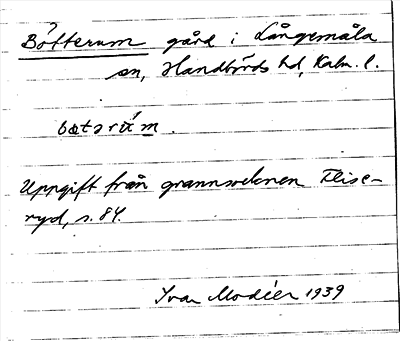 Bötterum gård i Långemåla
sn, Handbörds hd, Kalm. l.
bøtərùm.
Uppgift från grannsocknen Flise-
ryd, s. 84.
Ivar Modéer 1939